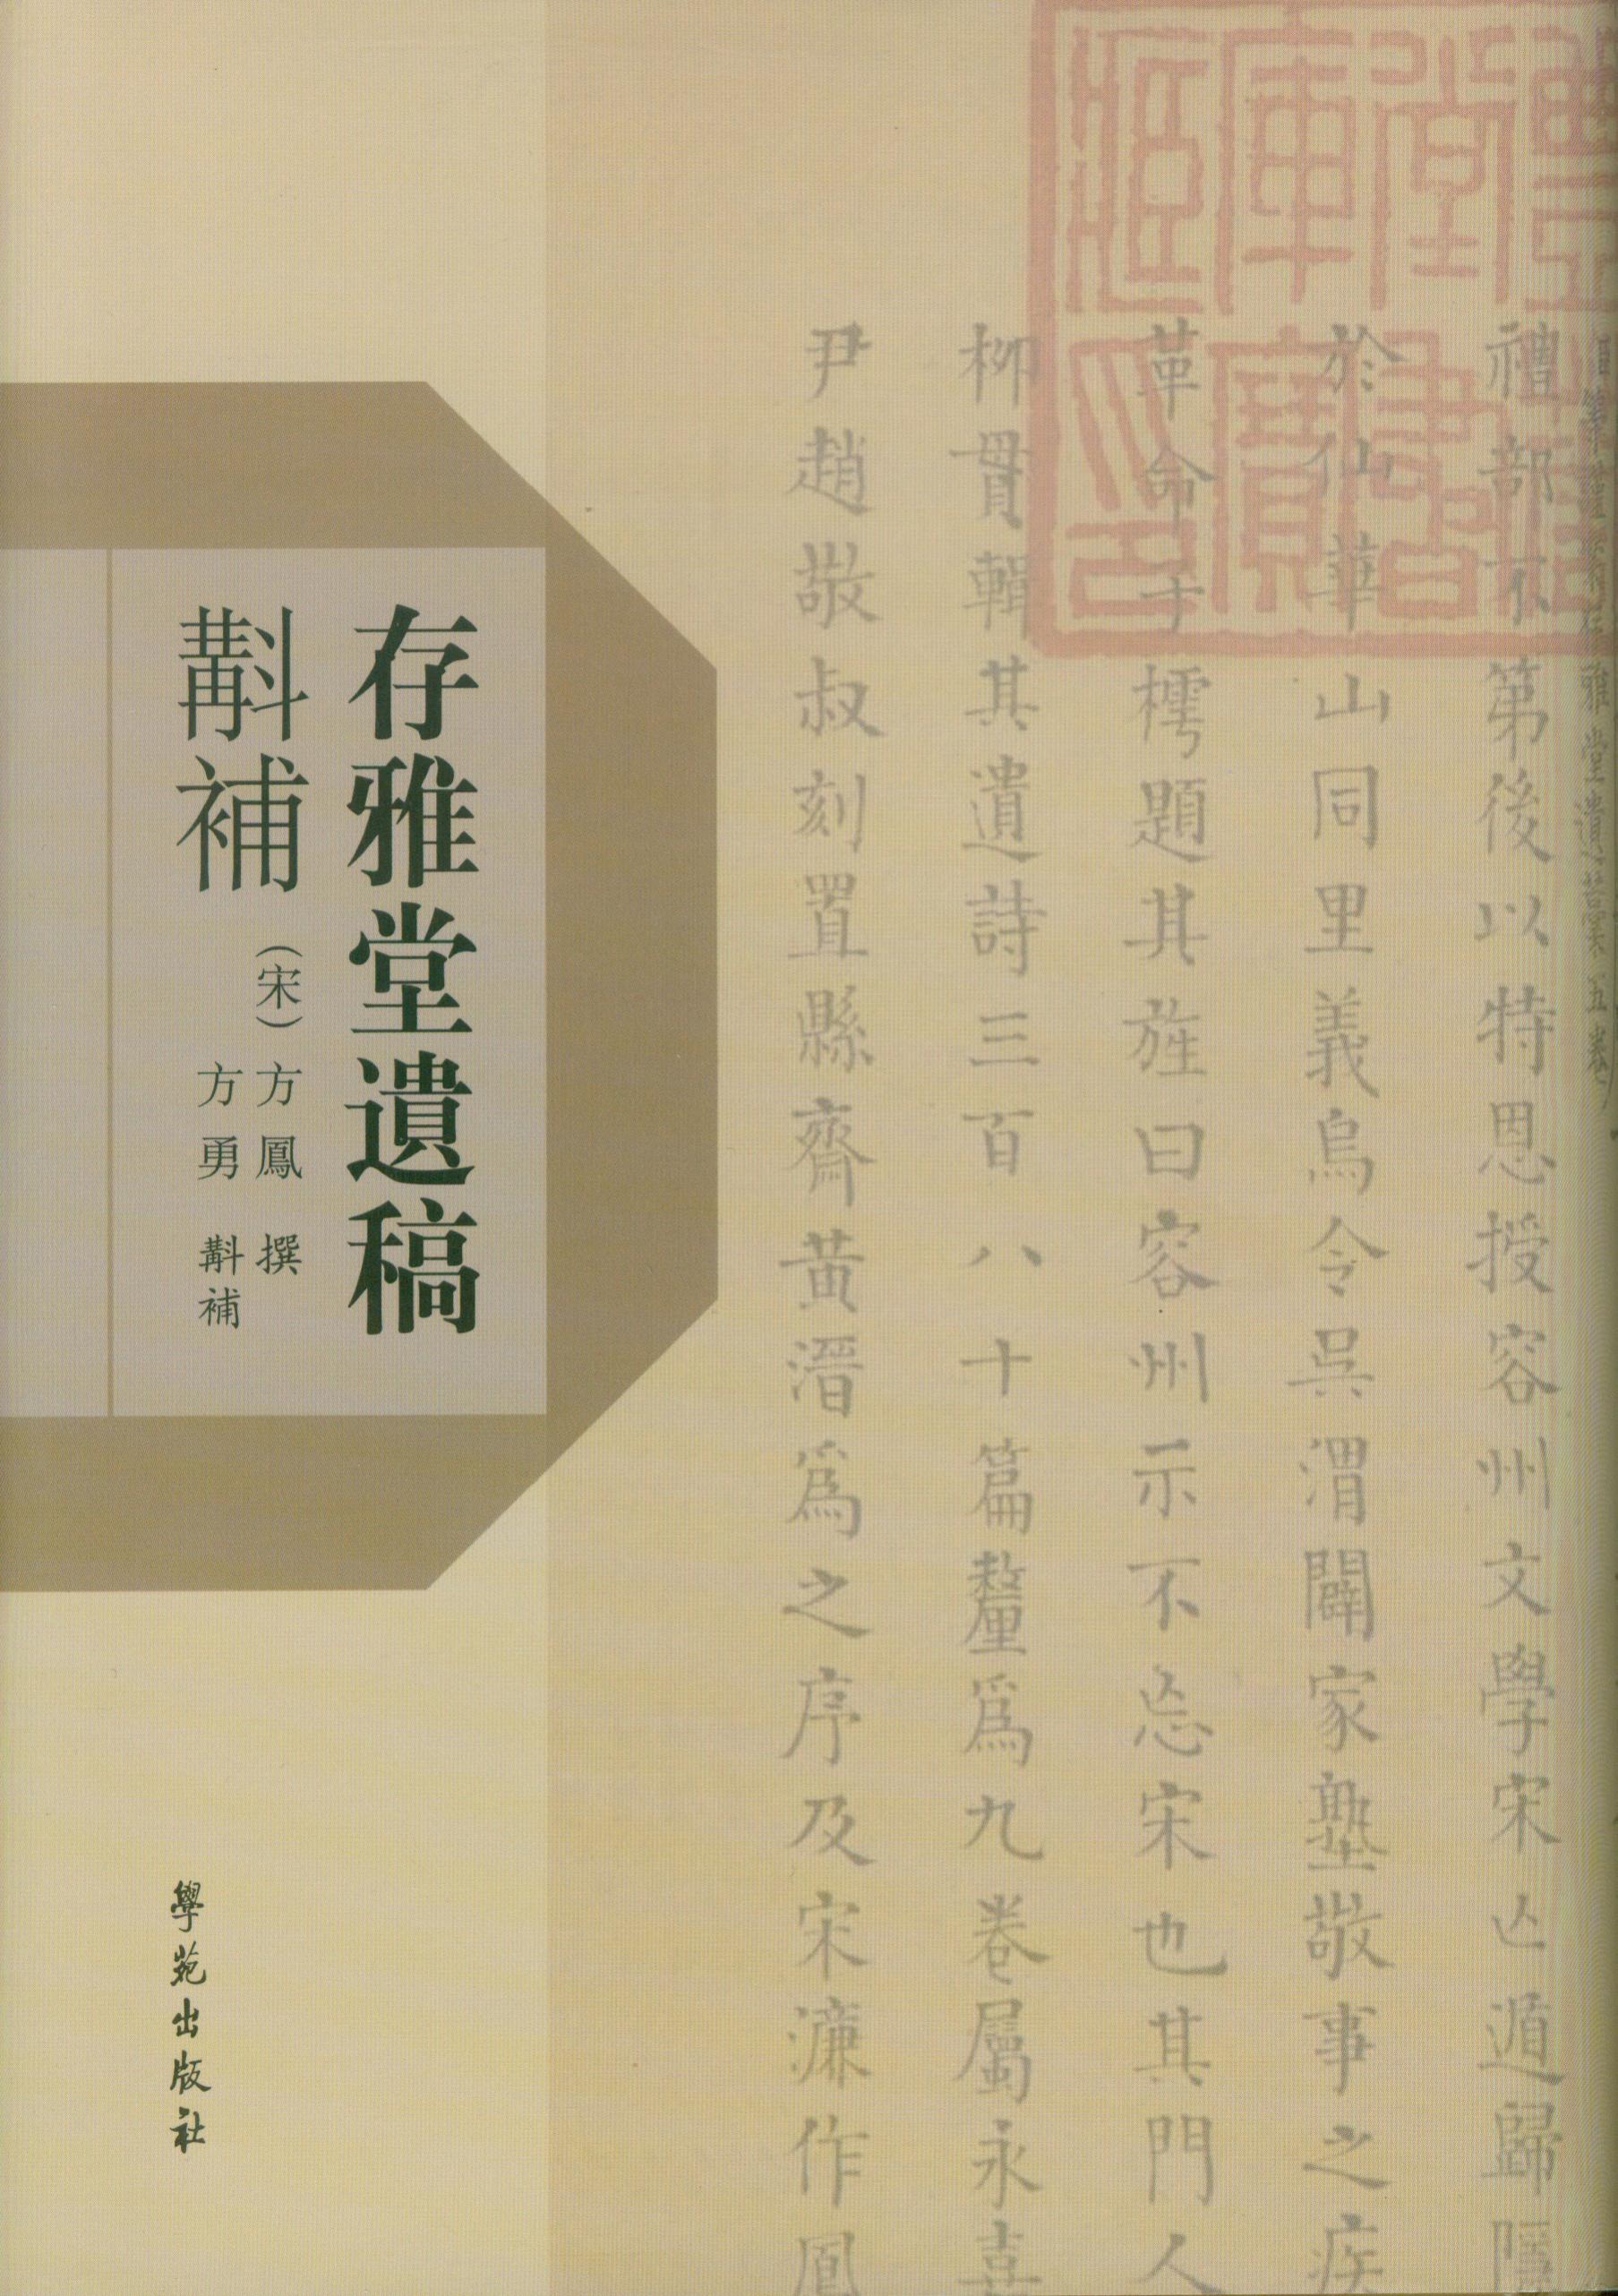 禮部不第後以特恩授容州文學宋亾遁歸隱
於仙華山同里義烏令吳渭闢家塾敬事之疾
革命子樗題其旌曰容州示不忘宋也其門人
柳貫輯其遺詩三百八十篇釐爲九卷屬永嘉
尹趙敬叔刻置縣齋黃溍爲之序及宋濂作鳳
存雅堂遺稿
斠補
（宋）方鳳 撰
方勇 斠補
學苑出版社